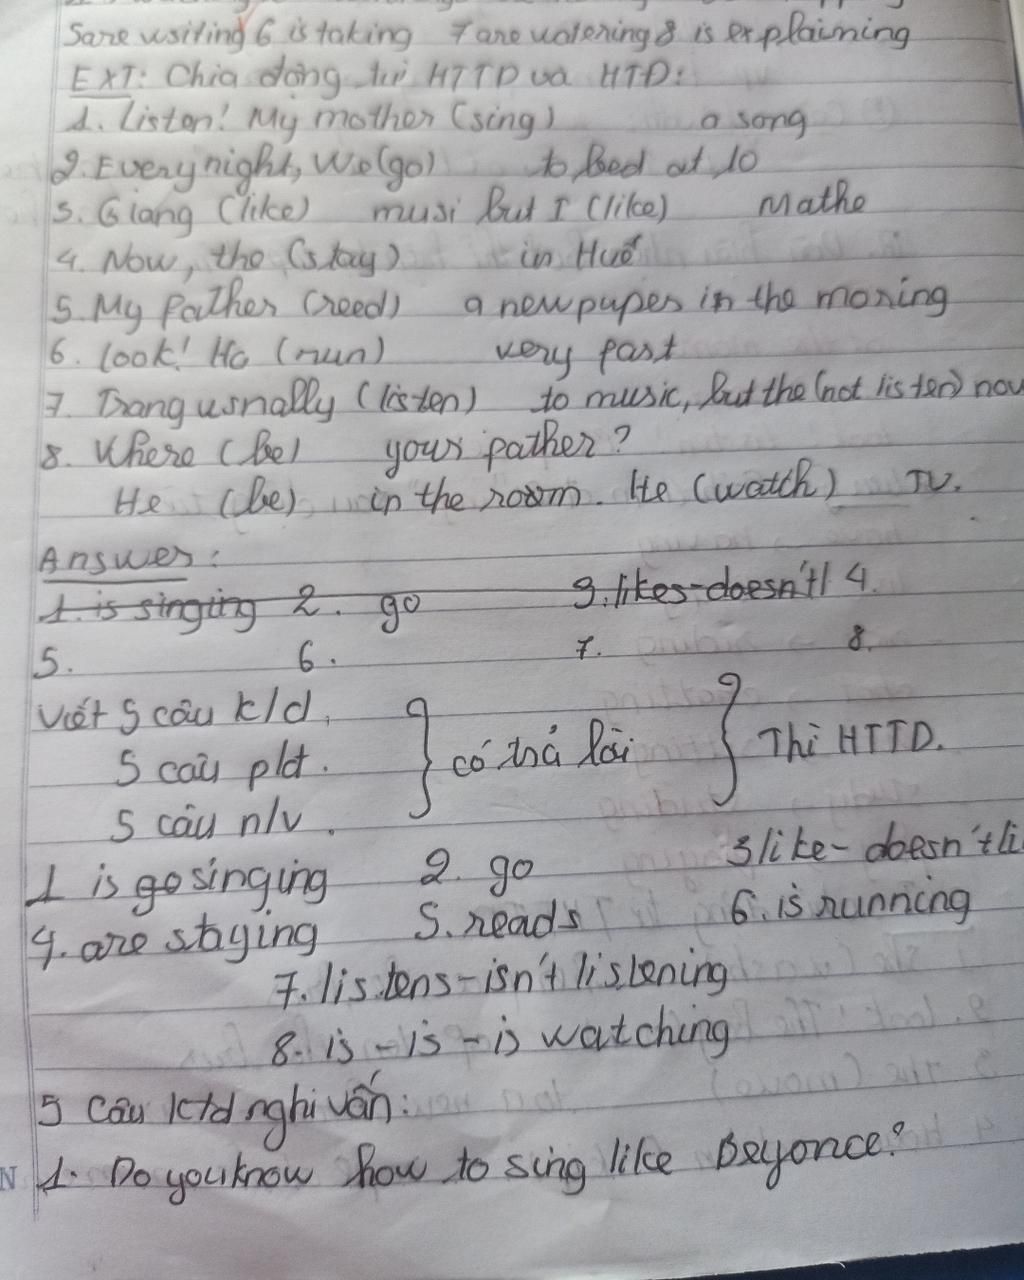 5are writing 6 is taking 7 are watering 8 is explaining
EXT: Chia động từ HTTD và HTĐ:
1. Listen! My mother (sing) a song
2. Every night, We (go) to bed at 10
3. Giang (like) musi but I (like) Mathe
4. Now, the (stay) in Huế
5. My father (reed) a newpupes in the moring
6. look! Ho (run) very past
7. Trang usnally (listen) to music, but the (not listen) now
8. Where (be) your pather?
He (be) in the room. He (watch) TV.
Answer:
1. is singing 2. go 3. likes-doesn't l 4.
5. 6. 7. 8.
Viết 5 câu k/d.
5 câu pđt. } có trả lời } Thì HTTD.
5 câu n/v.
1 is go singing 2. go 3 like- doesn't li
4. are staying 5. reads 6. is running
7. listens-isn't listening
8. is -is -is watching
5 câu ktd nghi vấn:
N 1. Do you know how to sing like Beyonce?